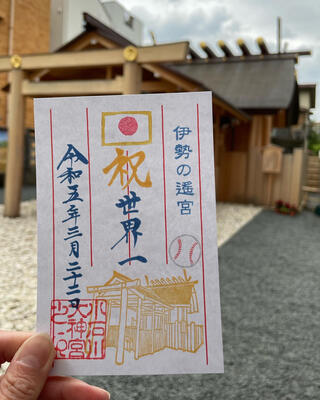 伊勢の遥宮
祝 世界一
令和五年三月二十二日
小石川
大神宮
之印